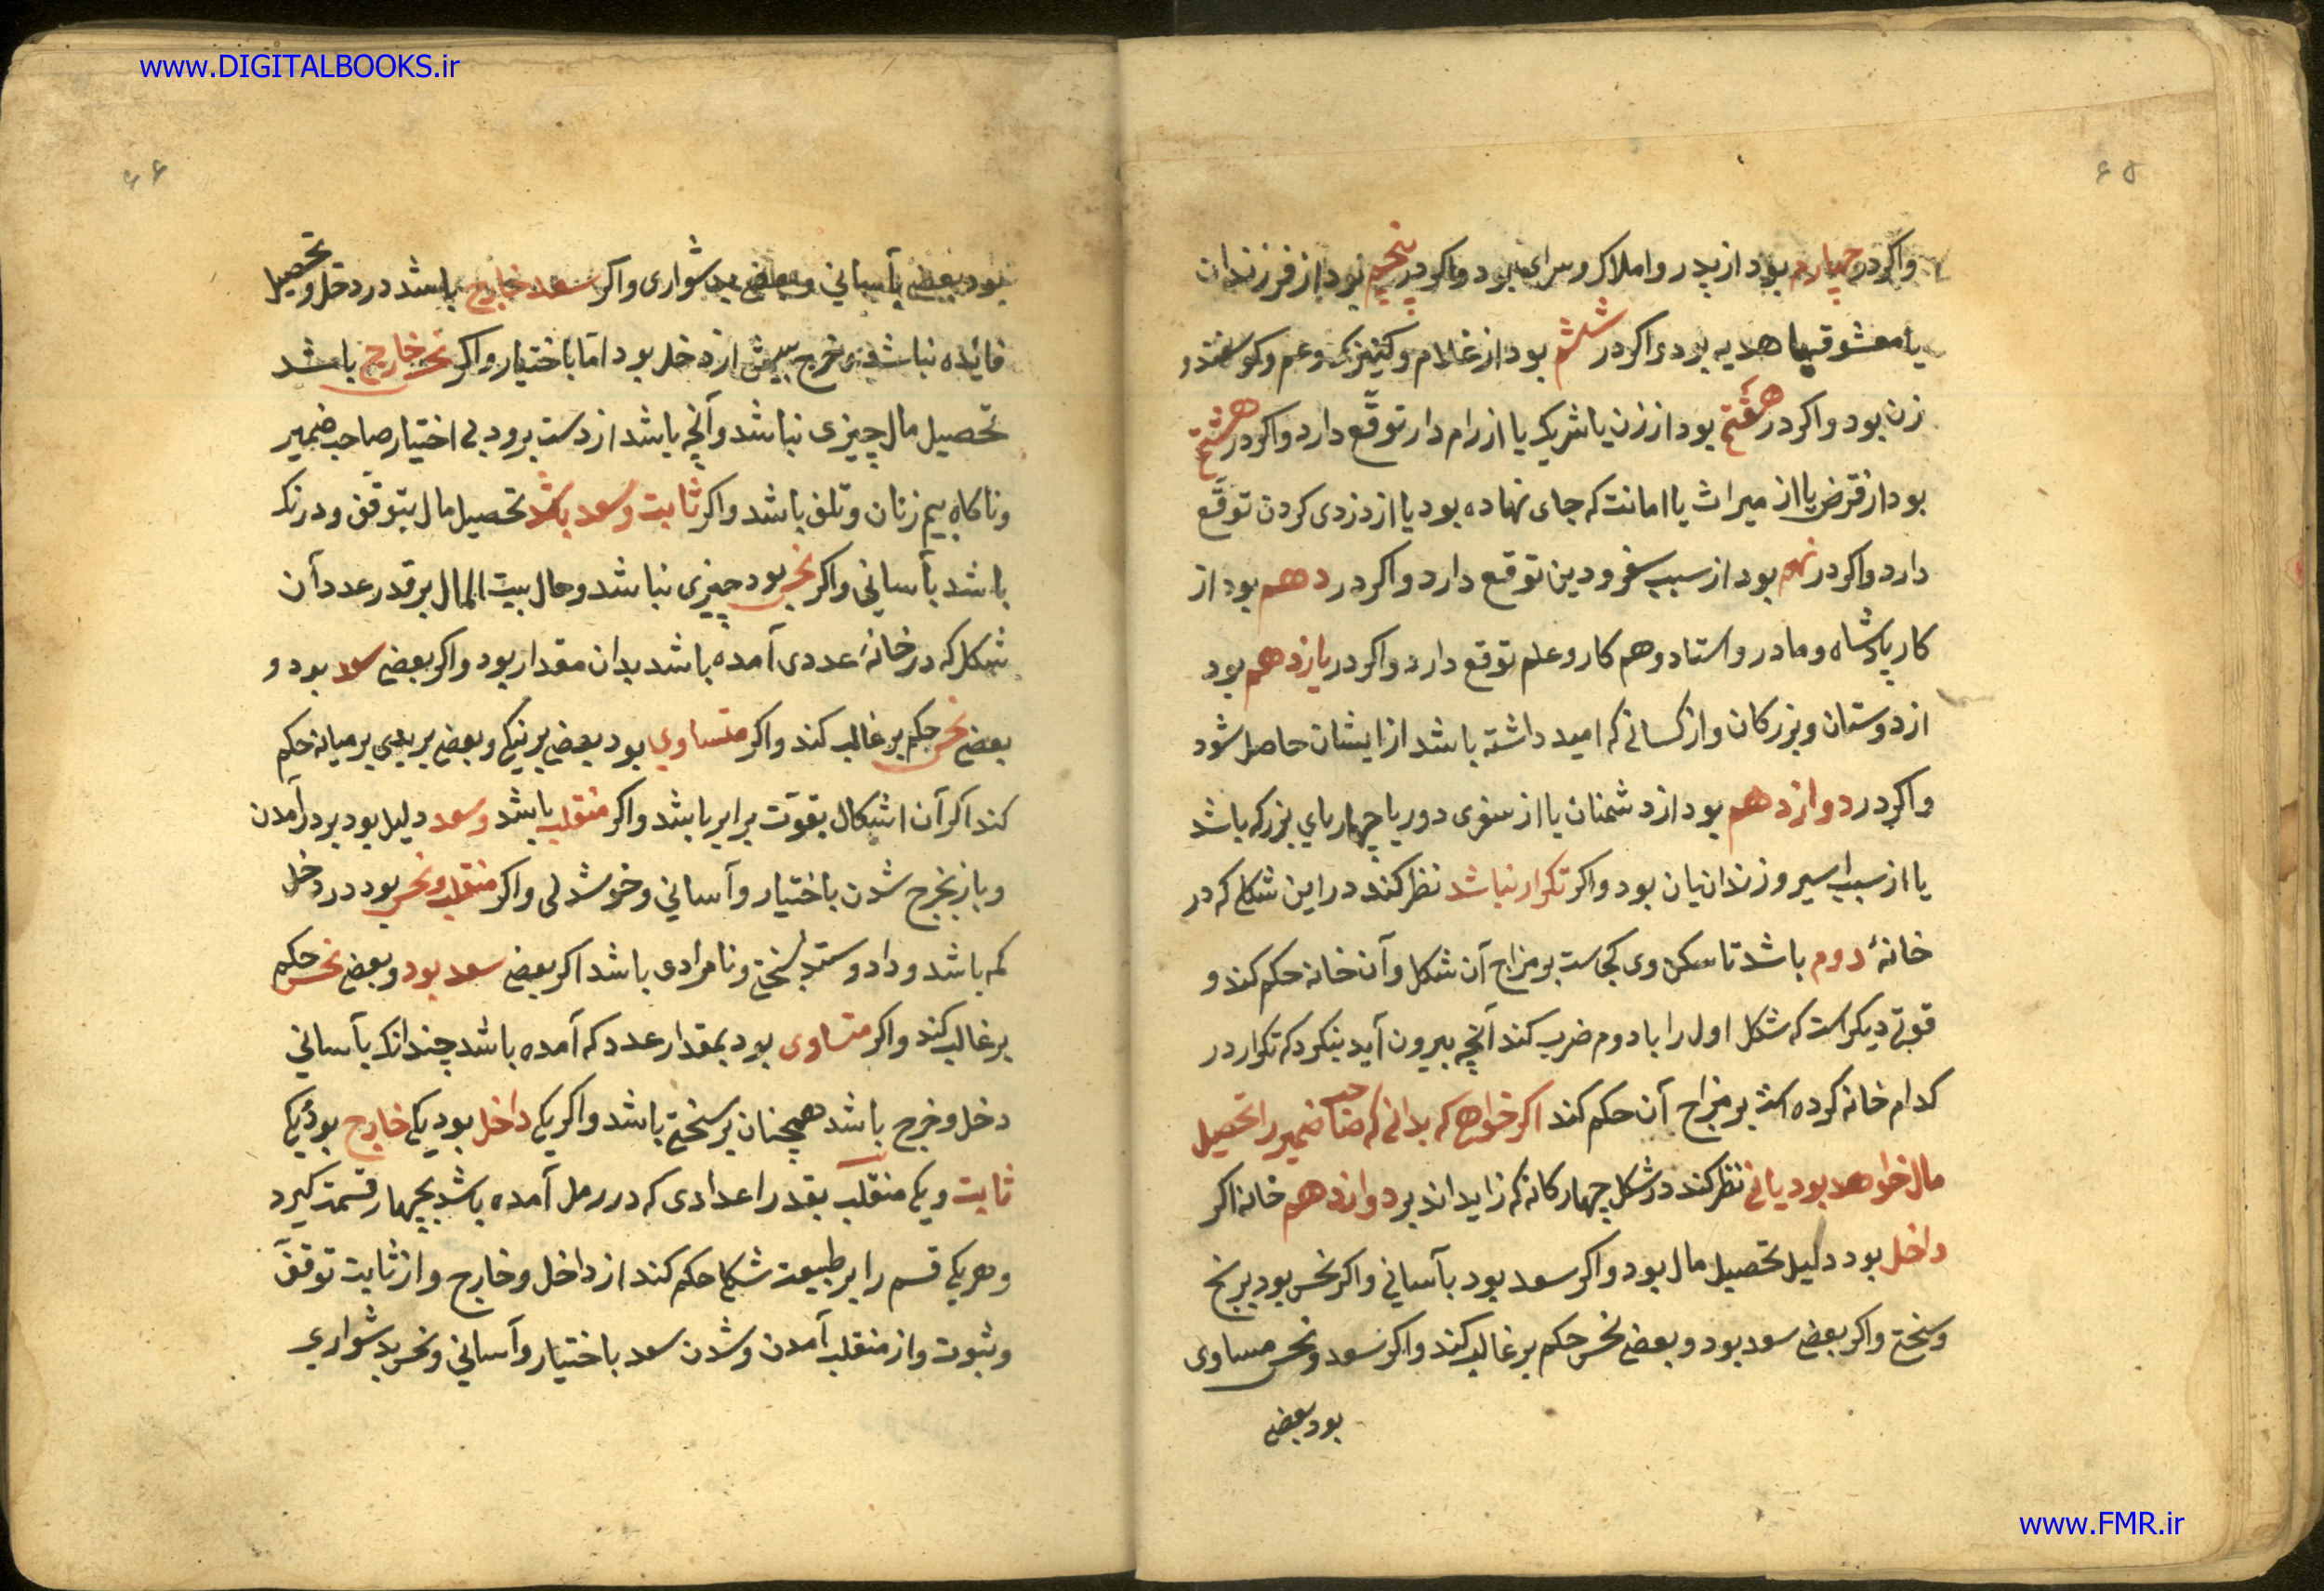 www.DIGITALBOOKS.ir
۶۵
واکر در چهارم بود از پدر و املاک و سرای بود واکر در پنجم بود از فرزندان
یا معشوق یا هدیه بود واکر در ششم بود از غلام و کنیزک و عم و کوسفند و
زن بود واکر در هفتم بود از زن یا شریک یا از رام دار توقّع دارد واکر در هشتم
بود از قرض یا از میراث یا امانت که جای نهاده بود یا از دزدی کردن توقّع
دارد واکر در نهم بود از سبب سفر و دین توقع دارد واکر در دهم بود از
کار پادشاه و مادر و استاد و هم کار و علم توقع دارد واکر در یازدهم بود
از دوستان و بزرکان و از کسانی که امید داشته باشد از ایشان حاصل شود
واکر در دوازدهم بود از دشمنان یا از سفری دور یا چهارپای بزرک باشد
یا از سبب اسیر و زندانیان بود واکر تکرار نباشد نظر کند در این شکل که در
خانهٔ دوم باشد تا سکن وی کجاست بر مزاج آن شکل و آن خانه حکم کند و
قوتی دیکر است که شکل اول را با دوم ضرب کند آنچه بیرون آید بنکرد که تکرار در
کدام خانه کرده است بر مزاج آن حکم کند اکر خواهی که بدانی که صاحب ضمیر را تحصیل
مال خواهد بود یا نی نظر کند در شکل چهارکانه که زایداند بر دوازدهم خانه اکر
داخل بود دلیل تحصیل مال بود واکر سعد بود بآسانی واکر نحس بود برنج
و سختی واکر بعضی سعد بود و بعضی نحس حکم بر غالب کند واکر سعد و نحس مساوی
بود بعضی
۶۶
بود بعضی بآسانی و بعضی بدشواری واکر سعد خارج باشد در دخل و تحصیل
فائده نباشد و خرج بیش از دخل بود امّا باختیار واکر نحس خارج باشد
تحصیل مال چیزی نباشد و آنچه باشد از دست برود بی اختیار صاحب ضمیر
و ناکاه بیم زنان و تلف باشد واکر ثابت و سعد باشد تحصیل مال بتوقّف و درنک
باشد بآسانی واکر نحس بود چیزی نباشد و حال بیت المال بر قدر عدد آن
شکل که در خانهٔ عددی آمده باشد بدان مقدار بود واکر بعضی سعد بود و
بعضی نحس حکم بر غالب کند واکر متساوی بود بعضی بر نیکی و بعضی بر بدی بر میانه حکم
کند اکر آن اشکال بقوّت برابر باشد واکر منقلب باشد و سعد دلیل بود بر درآمدن
و باز بخرج شدن باختیار و آسانی و خوشدلی واکر منقلب و نحس بود در دخل
کم باشد و داد و ستد بسختی و نامرادی باشد اکر بعضی سعد بود و بعضی نحس حکم
بر غالب کند واکر متساوی بود بمقدار عدد که آمده باشد چندانک بآسانی
دخل و خرج باشد همچنان بر سختی باشد واکر یکی داخل بود یکی خارج بود یکی
ثابت و یکی منقلب بقدر اعدادی که در رمل آمده باشد بچهار قسمت کیرد
و هر یکی قسم را بر طبیعت شکل حکم کند از داخل و خارج و از ثابت توقف
و ثبوت و از منقلب آمدن و شدن سعد باختیار و آسانی و نحس بدشواری
www.FMR.ir